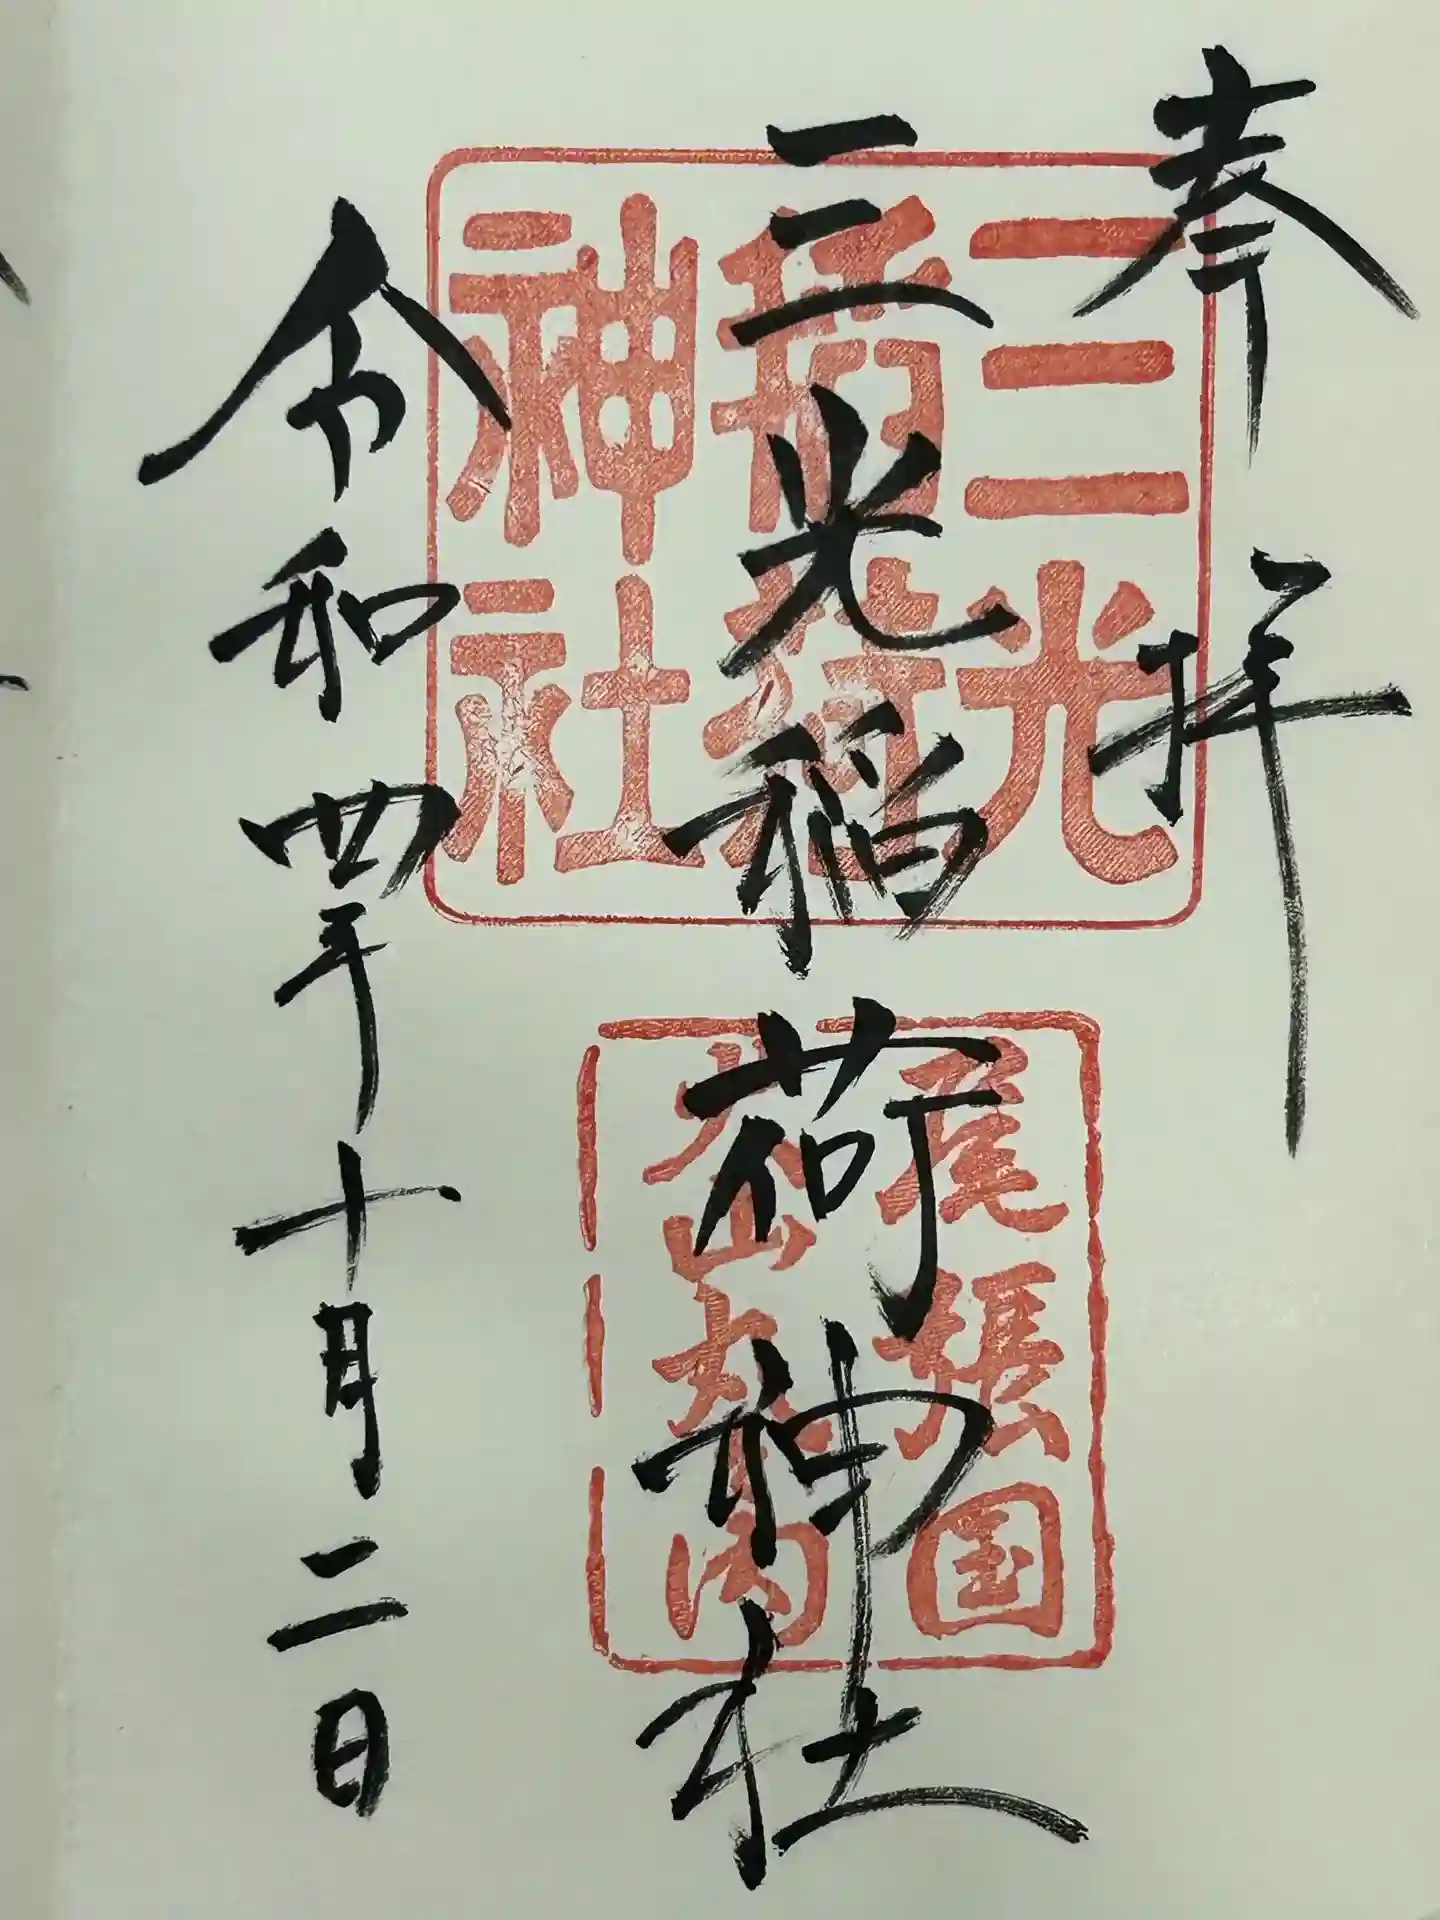 奉拝
三光稲荷神社
令和四年十月二日
三光
稲荷
神社
尾張国
犬山丸の内